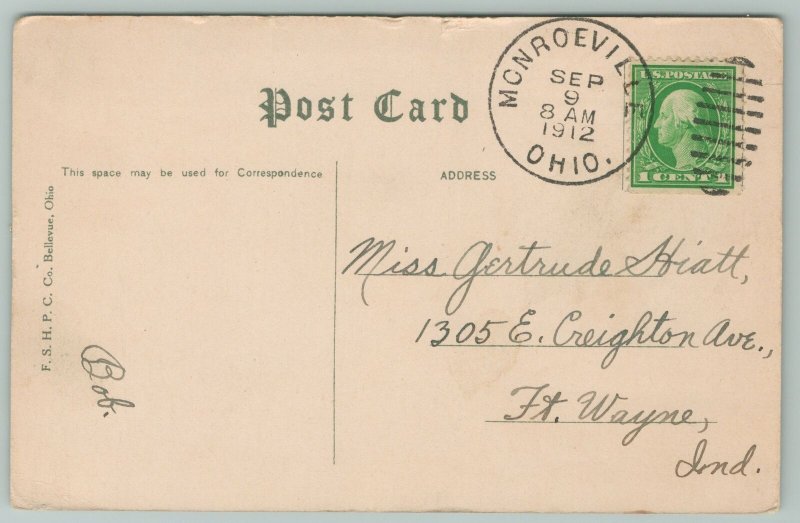 MONROEVILLE
SEP
9
8 AM
1912
OHIO.
U.S. POSTAGE
1 CENT 1
Post Card
This space may be used for Correspondence
ADDRESS
F. S. H. P. C. Co. Bellevue, Ohio
Bob.
Miss Gertrude Hiatt,
1305 E. Creighton Ave.,
Ft. Wayne,
Ind.